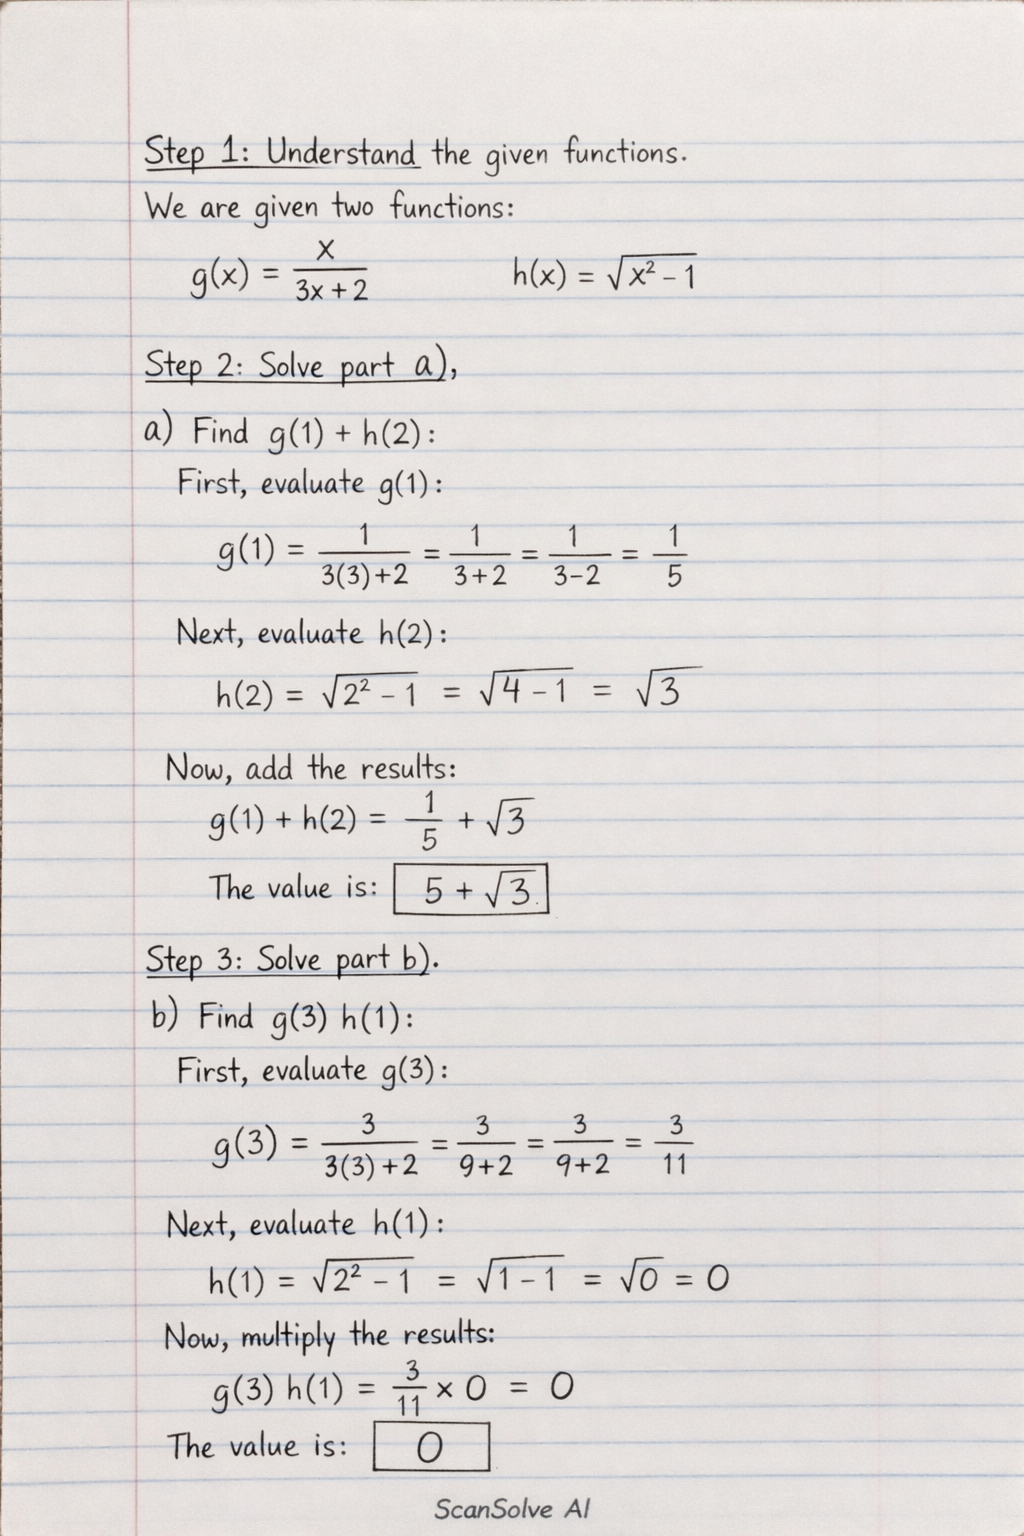 Step 1: Understand the given functions.
We are given two functions:
g(x) = x / (3x + 2)    h(x) = √(x² - 1)
Step 2: Solve part a),
a) Find g(1) + h(2):
First, evaluate g(1):
g(1) = 1 / (3(3)+2) = 1 / (3+2) = 1 / (3-2) = 1 / 5
Next, evaluate h(2):
h(2) = √(2² - 1) = √(4 - 1) = √3
Now, add the results:
g(1) + h(2) = 1/5 + √3
The value is: 5 + √3.
Step 3: Solve part b).
b) Find g(3) h(1):
First, evaluate g(3):
g(3) = 3 / (3(3)+2) = 3 / (9+2) = 3 / (9+2) = 3 / 11
Next, evaluate h(1):
h(1) = √(2² - 1) = √(1 - 1) = √0 = 0
Now, multiply the results:
g(3) h(1) = 3/11 × 0 = 0
The value is: 0
ScanSolve AI